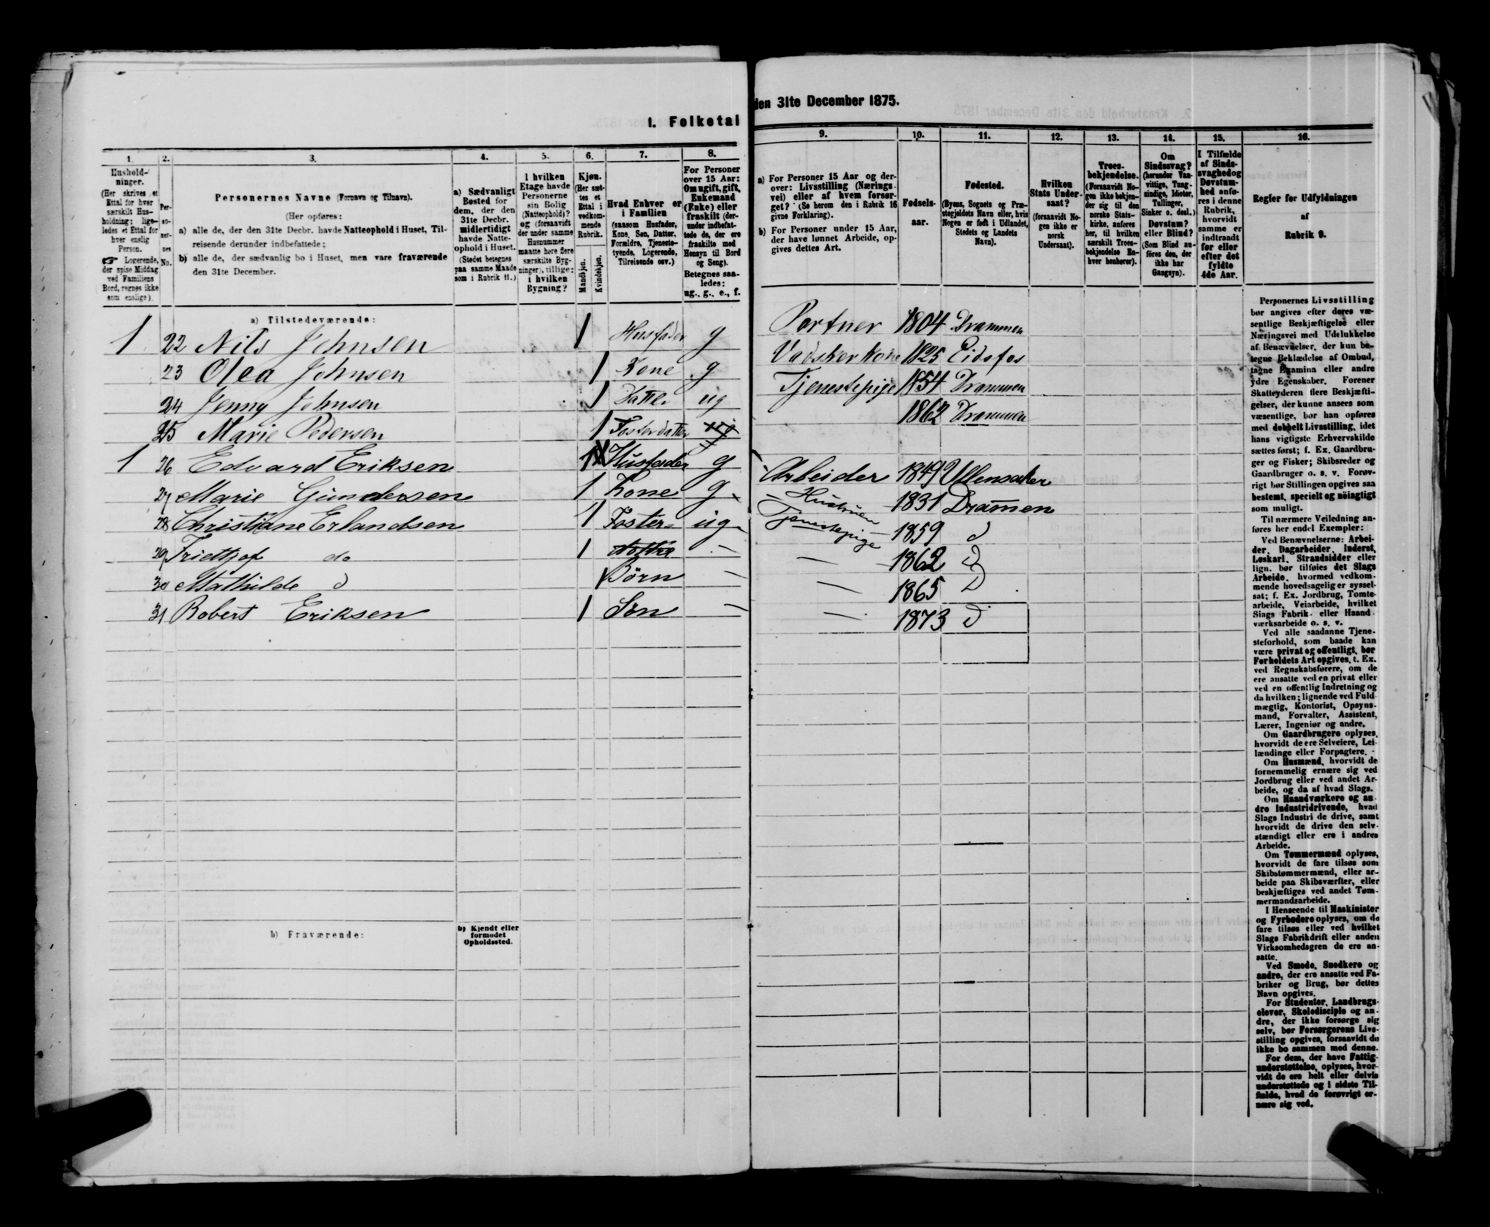 I. Folketal
den 31te December 1875.
1. 2. 3. 4. 5. 6. 7. 8.
9. 10. 11. 12. 13. 14. 15. 16.
Hushold-
ninger.
(Her skrives et
Ettal for hver
særskilt Hus-
holdning; lige-
ledes et Ettal for
hver enslig
Person.
☞ Logerende,
der spise Middag
ved Familiens
Bord, regnes ikke
som enslige).
Per-
so-
ner-
nes
No.
Personernes Navne (Fornavn og Tilnavn).
(Her opføres:
a) alle de, der den 31te Decbr. havde Natteophold i Huset, Til-
reisende derunder indbefattede;
b) alle de, der sædvanlig bo i Huset, men vare fraværende
den 31te December.
a) Sædvanligt
Bosted for
dem, der den
31te Decbr.
midlertidigt
havde Natte-
ophold i Huset.
(Stedet betegnes
paa samme Maade
som i Rubrik 11.)
I hvilken
Etage havde
Personerne
sin Bolig
(Natteophold)?
og (forsaavidt
der under samme
Husnummer
maatte høre flere
særskilte Byg-
ninger), tillige:
i hvilken
Bygning?
Kjøn.
(Her sæt-
tes et
Ettal i
vedkom-
mende
Rubrik.
Mandkjøn.
Kvindekjøn.
Hvad Enhver er
i Familien
(saasom Husfader,
Kone, Søn, Datter,
Forældre, Tjeneste-
tyende, Logerende,
Tilreisende osv.)
For Personer
over 15 Aar:
Om ugift, gift,
Enkemand
(Enke) eller
fraskilt (der-
under indbefat-
tede de, der ere
fraskilte med
Hensyn til Bord
og Seng).
Betegnes saa-
ledes:
ug., g., e., f.
a) For Personer 15 Aar og der-
over: Livsstilling (Nærings-
vei) eller af hvem forsør-
get? (Se herom den i Rubrik 16
givne Forklaring).
b) For Personer under 15 Aar,
der have lønnet Arbeide, op-
gives dettes Art.
Fødsels-
aar.
Fødested.
(Byens, Sognets og Præ-
stegjeldets Navn eller, hvis
Nogen er født i Udlandet,
Stedets og Landets
Navn).
Hvilken
Stats Under-
saat?
(forsaavidt No-
gen ikke er
norsk
Undersaat).
Troes-
bekjendelse.
(Forsaavidt No-
gen ikke bekjen-
der sig til den
norske Stats-
kirke, anføres
her, til hvilken
særskilt Troes-
bekjendelse En-
hver henhører).
Om
Sindssvag?
(herunder Van-
vittige, Tung-
sindige, Idioter,
Tullinger,
Sinker o. desl.)
Døvstum?
eller Blind?
(Som Blind an-
føres den, der
ikke har
Gangsyn).
I Tilfælde
af Sinds-
svaghed og
Døvstum-
hed anfø-
res i denne
Rubrik,
hvorvidt
samme er
indtraadt
før eller
efter det
fyldte
4de Aar.
Regler for Udfyldningen
af
Rubrik 9.
a) Tilstedeværende:
1 22 Nils Johnsen 1 Husfader g Portner 1804 Drammen
23 Olea Johnsen 1 Kone g Vadskerkone 1825 Eidsfos
24 Jenny Johnsen 1 Datte ug Tjenestepige 1854 Drammen
25 Marie Pedersen 1 Fosterdatter ug 1862 Drammen
1 26 Edvard Eriksen 1 Husfader g Arbeider 1849 Ullensaker
27 Marie Gundersen 1 Kone g Hustruen 1831 Dramen
28 Christiane Erlandsen 1 Foster- ug Tjenestepige 1859 d
29 Tridthof do 1 — — 1862 D
30 Mathilde d 1 Børn — — 1865 D
31 Robert Eriksen 1 Søn — — 1873 d
b) Fraværende:
b) Kjendt eller
formodet
Opholdssted.
Personernes Livsstilling
bør angives efter deres væ-
sentlige Beskjæftigelse eller
Næringsvei med Udelukkelse
af Benævnelser, der kun be-
tegne Beklædelse af Ombud,
tagne Examina eller andre
ydre Egenskaber. Forener
Skatteyderen flere Beskjæfti-
gelser, der kunne ansees som
væsentlige, bør han opføres
med dobbelt Livsstilling, idet
hans vigtigste Erhvervskilde
sættes først; f. Ex. Gaardbru-
ger og Fisker; Skibsreder og
Gaardbruger o. s. v. Forøv-
rigt bør Stillingen opgives saa
bestemt, specielt og nøiagtigt
som muligt.
Til nærmere Veiledning an-
føres her endel Exempler:
Ved Benævnelserne: Arbei-
der, Dagarbeider, Inderst,
Løskarl, Strandsidder eller
lign. bør tilføies det Slags
Arbeide, hvormed vedkom-
mende hovedsagelig er syssel-
sat; f. Ex. Jordbrug, Tomte-
arbeide, Veiarbeide, hvilket
Slags Fabrik- eller Haand-
værksarbeide o. s. v.
Ved alle saadanne Tjene-
steforhold, som baade kan
være privat og offentligt, bør
Forholdets Art opgives, t. Ex.
ved Regnskabsførere, om de
ere ansatte ved en privat eller
ved en offentlig Indretning og
da hvilken; lignende ved Fuld-
mægtig, Kontorist, Opsyns-
mand, Forvalter, Assistent,
Lærer, Ingeniør og andre.
Om Gaardbrugere oplyses,
hvorvidt de ere Selveiere, Lei-
lændinge eller Forpagtere.
Om Husmænd, hvorvidt de
fornemmelig ernære sig ved
Jordbrug eller ved andet Ar-
beide, og da af hvad Slags.
Om Haandværkere og an-
dre Industridrivende, hvad
Slags Industri de drive, samt
hvorvidt de drive den selv-
stændigt eller ere i andres
Arbeide.
Om Tømmermænd oplyses,
hvorvidt de fare tilsøs som
Skibstømmermænd, eller ar-
beide paa Skibsværfter, eller
beskjæftiges ved andet Tøm-
mermandsarbeide.
I Henseende til Maskinister
og Fyrbødere oplyses, om de
fare tilsøs eller ved hvilket
Slags Fabrikdrift eller anden
Virksomhedsgren de ere an-
satte.
Ved Smede, Snedkere og
andre, der ere ansatte ved Fa-
briker og Brug, bør dettes
Navn opgives.
For Studenter, Landbrugs-
elever, Skoledisciple og an-
dre, der ikke forsørge sig
selv, bør Forsørgerens Livs-
stilling opgives, forsaavidt de
ikke bo sammen med denne.
For dem, der have Fattig-
understøttelse, oplyses, hvor-
vidt de ere helt eller delvis
understøttede og i sidste Til-
fælde, hvad de forøvrigt er-
nære sig ved.